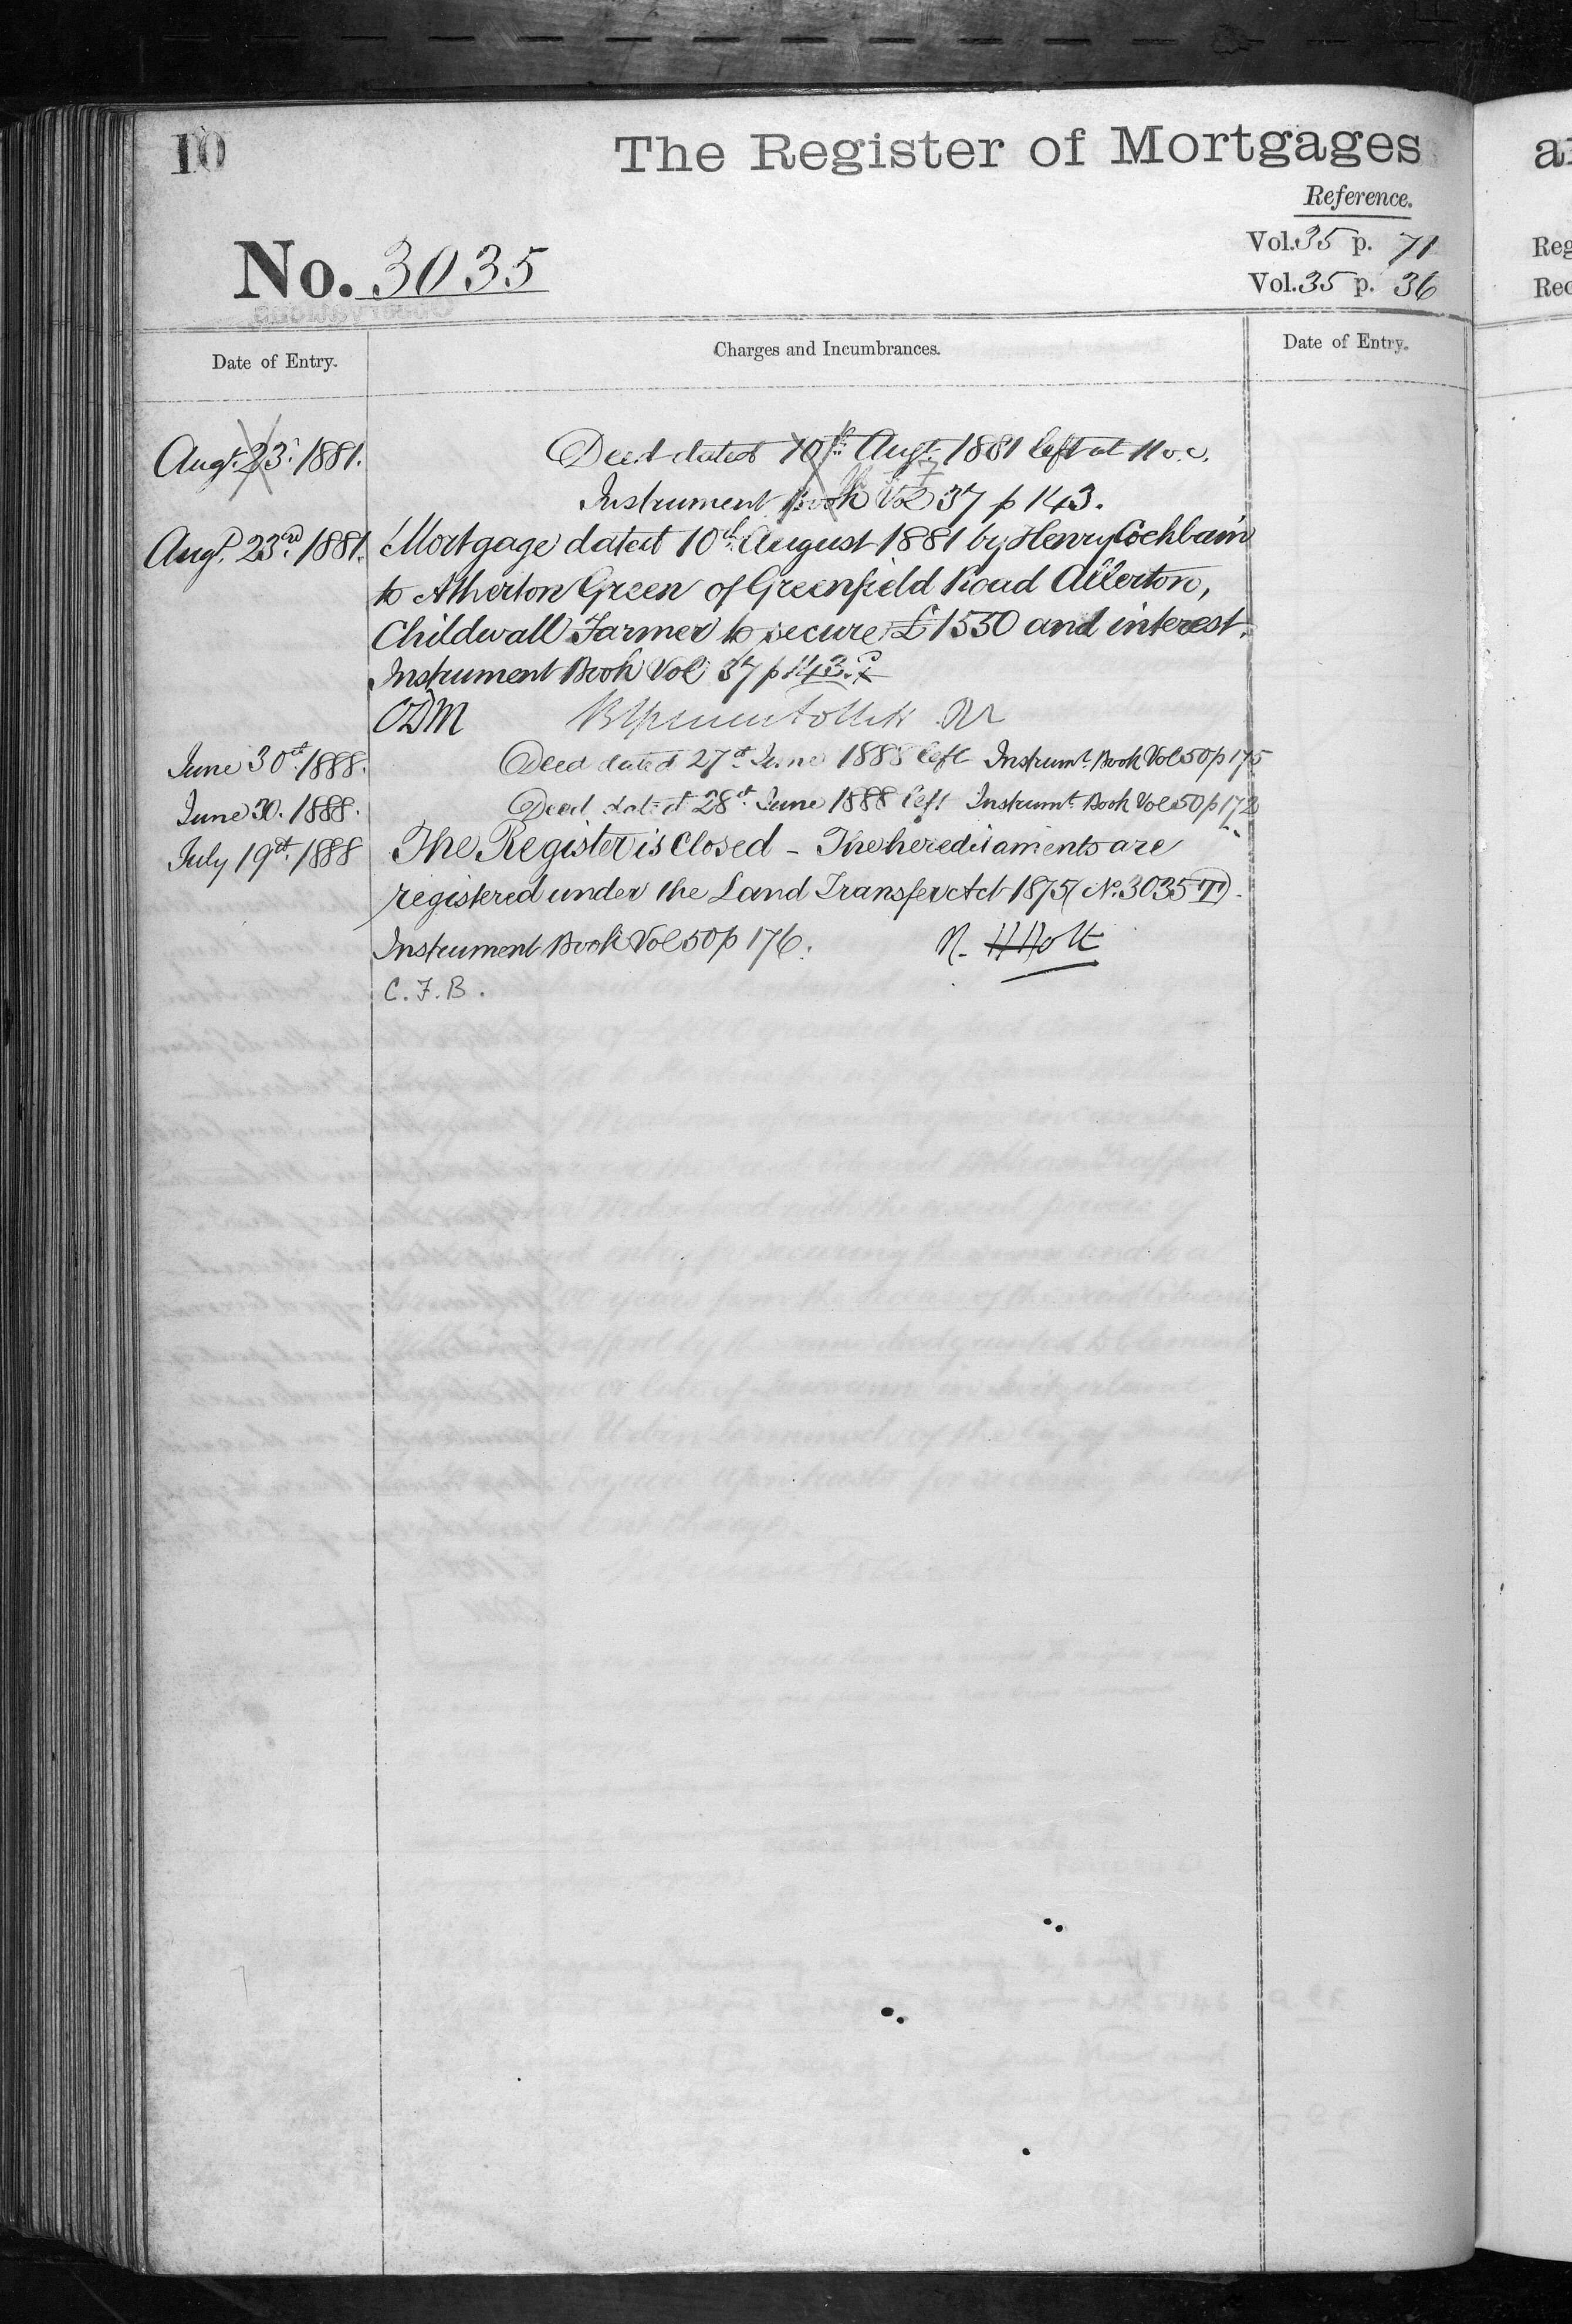 10
The Register of Mortgages
Reference.
Vol. 35 p. 71
Vol. 35 p. 36
No. 3035
Date of Entry.
Charges and Incumbrances.
Date of Entry.
Augt. 23. 1881.
Deed dated 10th Augt. 1881 left at 11 o.c.
Instrument Book Vol 37 p 143.
Augt. 23rd. 1881.
Mortgage dated 10th. August 1881 by Henry Cochbain
to Atherton Green of Greenfield Road Allerton,
Childwall Farmer to secure £1550 and interest.
Instrument Book Vol 37 p 143.
ODM
June 30th. 1888.
Deed dated 27th. June 1888 left Instrumt. Book Vol 50 p 175
June 30. 1888.
Deed dated 28th. June 1888 left Instrumt. Book Vol 50 p 172
July 19th. 1888
The Register is Closed - The hereditaments are
registered under the Land Transfer Act 1875 (No. 3035 T).
Instrument Book Vol 50 p 176.
R. H Holt
C. F. B.
a
Reg
Rec